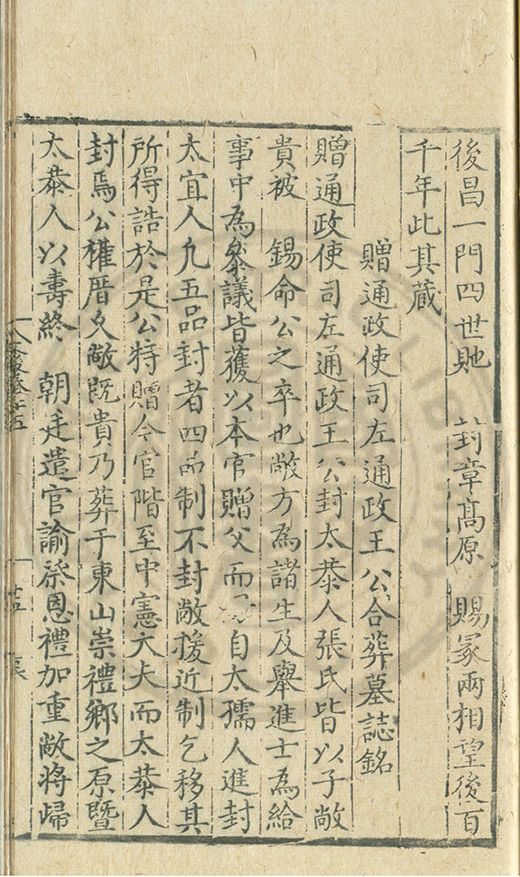 後昌一門四世貤　封章高原　賜冢兩相望後百
千年此其藏
贈通政使司左通政王公合葬墓誌銘
贈通政使司左通政王公封太恭人張氏皆以子敞
貴被　錫命公之卒也敞方為諸生及舉進士為給
事中為叅議皆獲以本官贈父而　自太孺人進封
太宜人凡五品封者四品制不封敞援近制乞移其
所得誥於是公特贈今官階至中憲大夫而太恭人
封焉公權厝久敞既貴乃葬于東山崇禮鄉之原暨
太恭人以壽終　朝廷遣官諭祭恩禮加重敞將歸